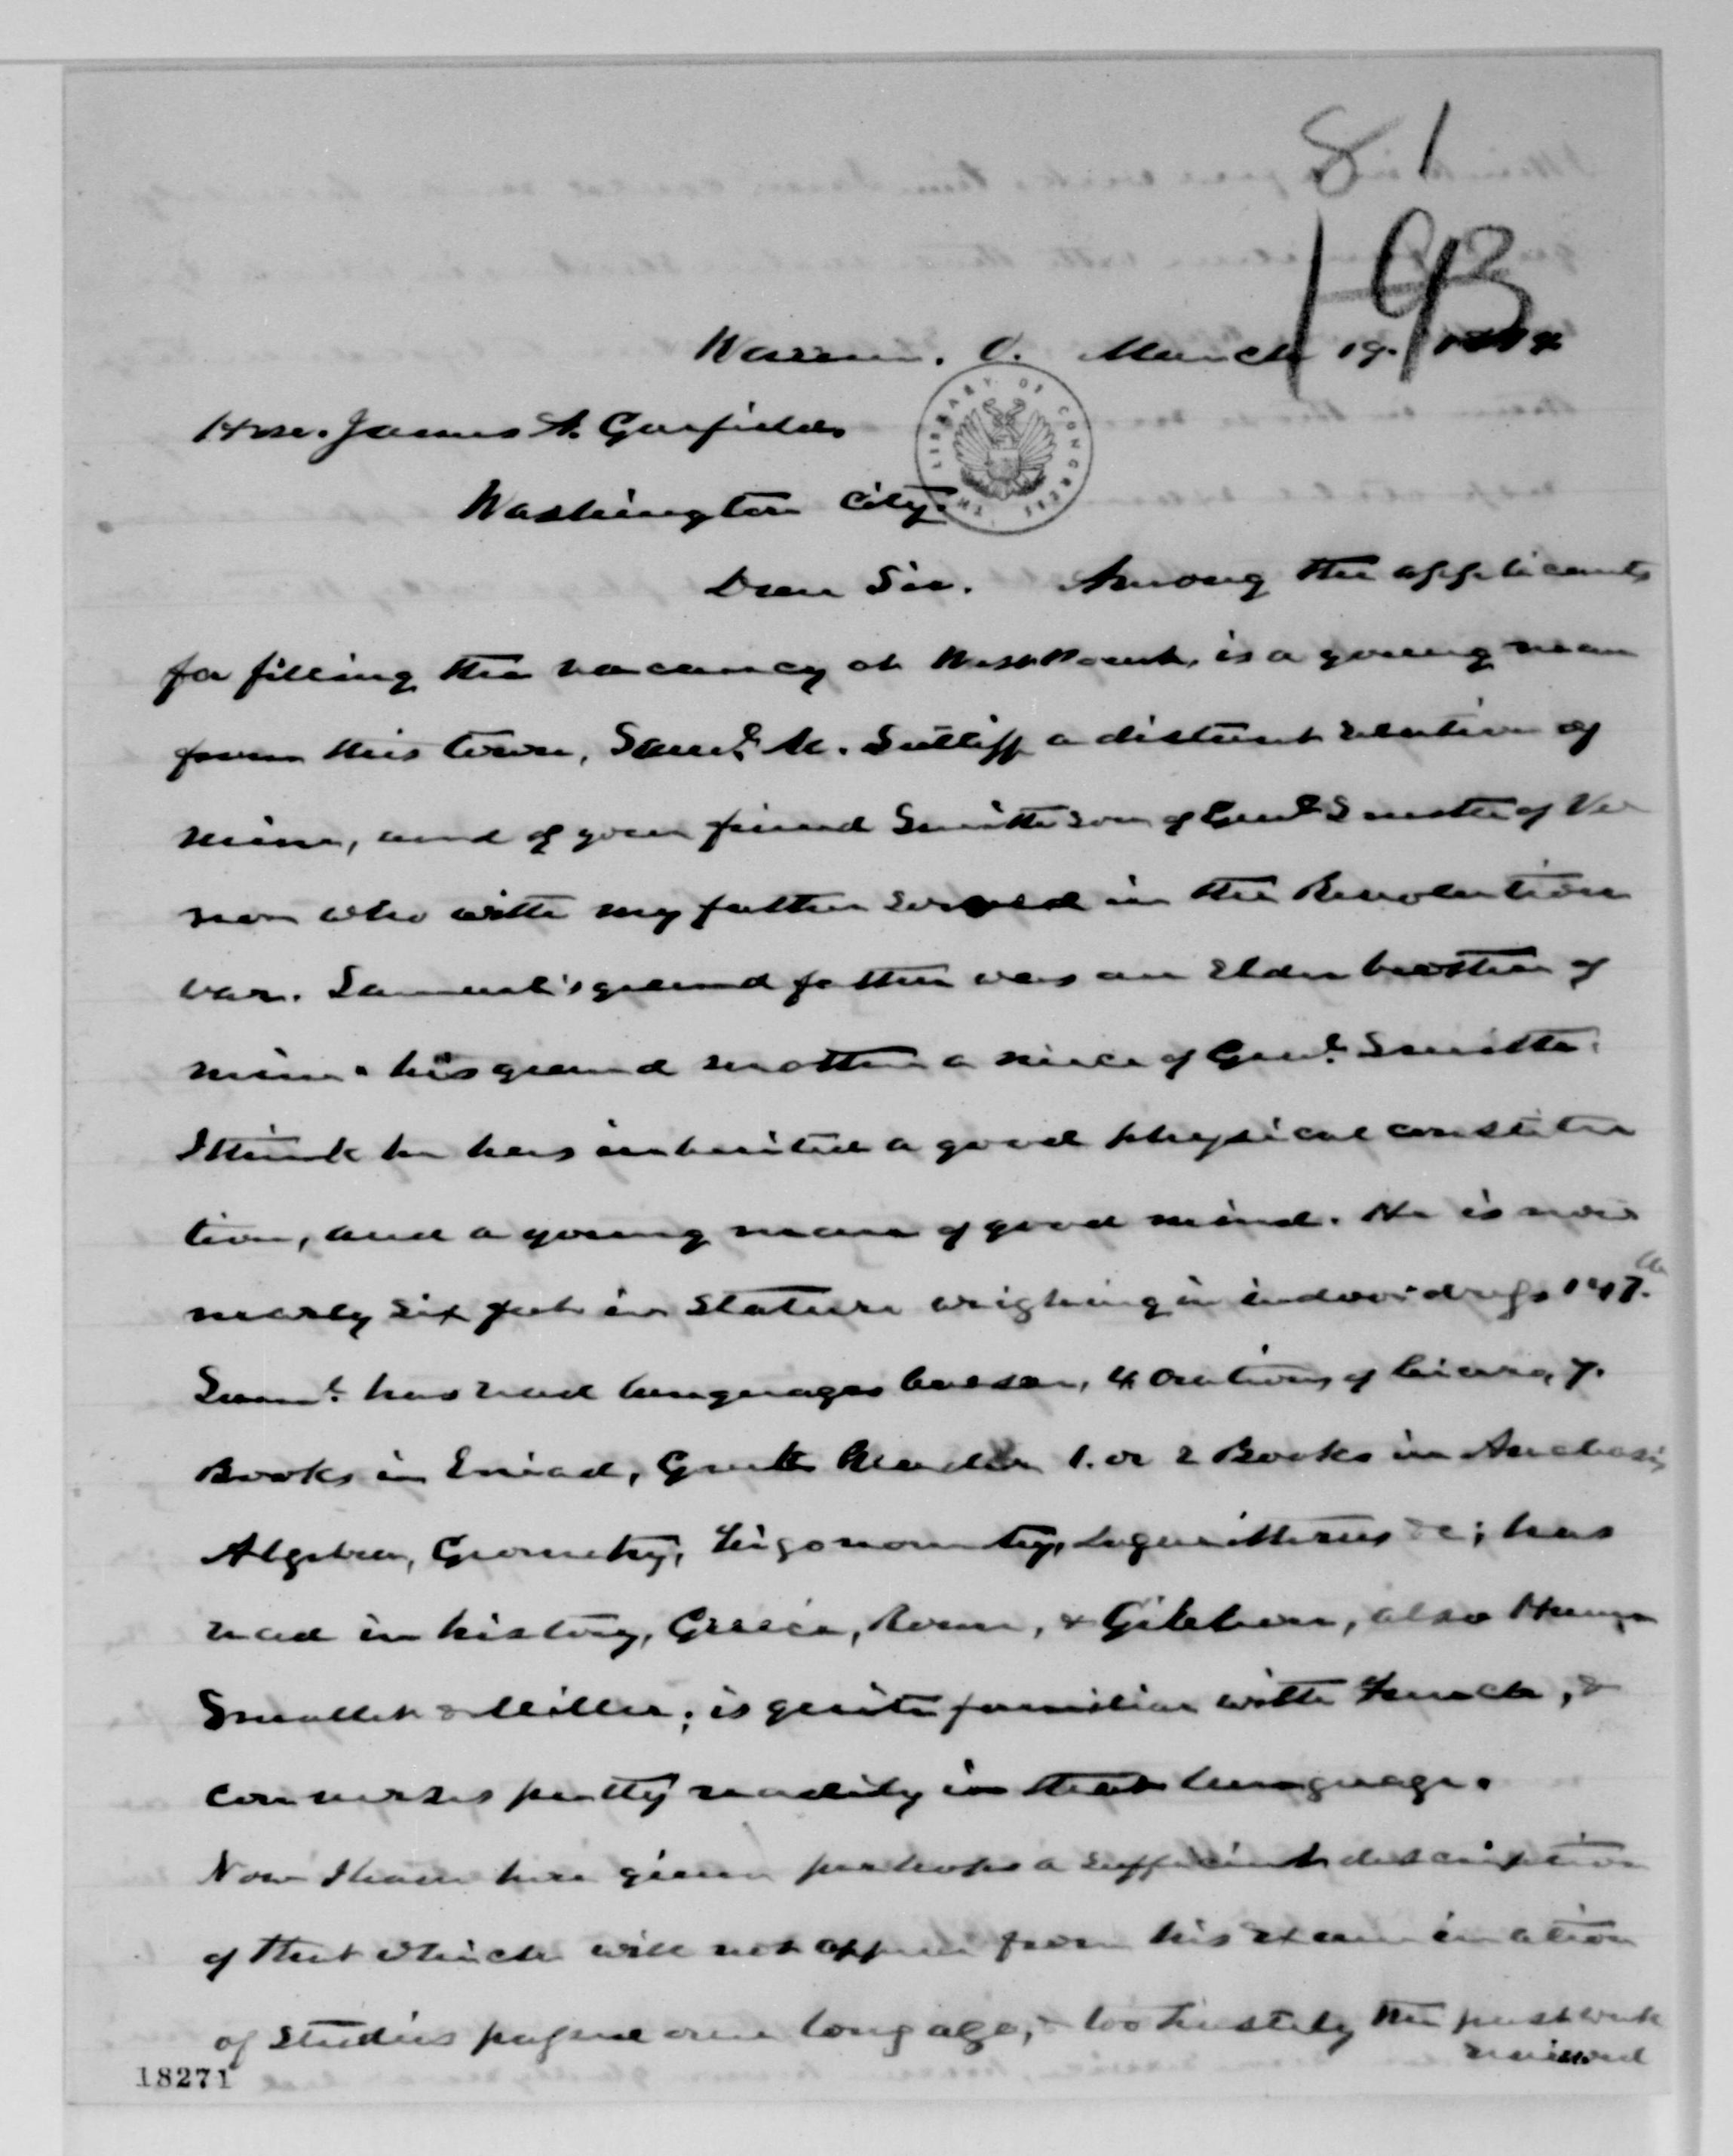 81
193
Warren. O. March 19.
Hon. James A. Garfield
THE LIBRARY OF CONGRESS
Washington City.
Dear Sir. Among the applicants
for filling the vacancy at West Point, is a young man
from this town, Saml. M. Sutliff a distant relation of
mine, and of your friend Smith son of Genl Smith of Ver
non who with my father served in the Revolution
war. Samuel's grand father was an Elder brother of
mine & his grand mother a niece of Genl. Smith.
I think he has inherited a good physical constitu
tion, and a young man of good mind. He is now
nearly six feet in Stature weighing in indoor dress 147.
Saml. has read languages Caesar, 4 Orations of Cicero, 7.
Books in Eniad, Greek Reader 1. or 2 Books in Anabasis
Algebra, Geometry, Trigonometry, Logarithms &c; has
read in history, Greece, Rome, & Gibbon, also Hume
Smollett & Miller; is quite familiar with French, &
converses pretty readily in that language.
Now I have here given perhaps a sufficient description
of that which will not appear from his examination
of Studies passed over long ago, & too hastily the past week
reviewed
18271